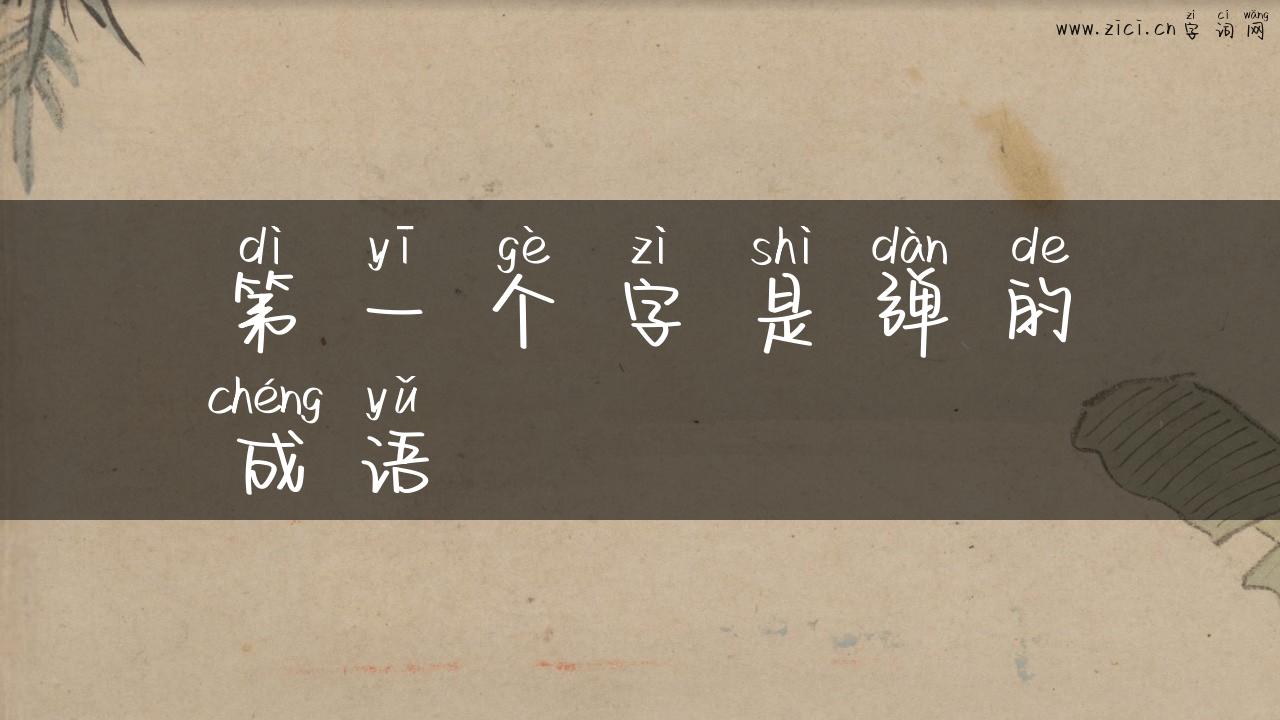 zì cí wǎng
www.zici.cn 字 词 网
dì yī gè zì shì dàn de
第 一 个 字 是 弹 的
chéng yǔ
成 语